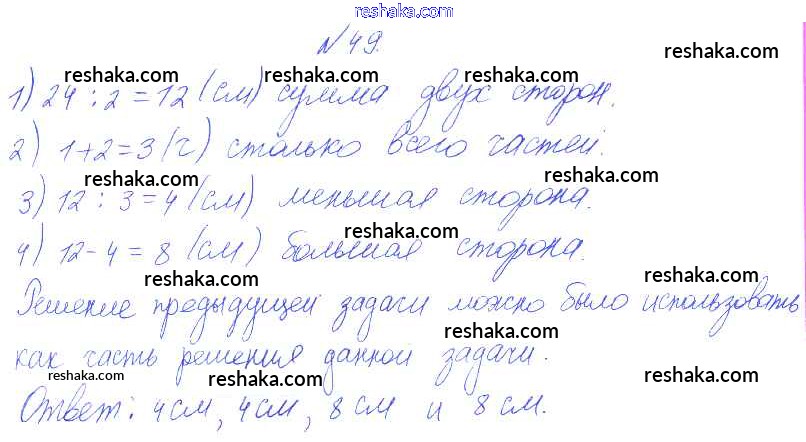 reshaka.com
№ 49.
reshaka.com
reshaka.com reshaka.com
1) 24 : 2 = 12 (см) сумма двух сторон.
reshaka.com reshaka.com
2) 1+2=3 (ч) столько всего частей.
reshaka.com reshaka.com
3) 12 : 3 = 4 (см) меньшая сторона.
reshaka.com reshaka.com
4) 12 - 4 = 8 (см) большая сторона.
reshaka.com reshaka.com
Решение предыдущей задачи можно было использовать
reshaka.com
как часть решения данной задачи.
reshaka.com reshaka.com reshaka.com
Ответ: 4 см, 4 см, 8 см и 8 см.